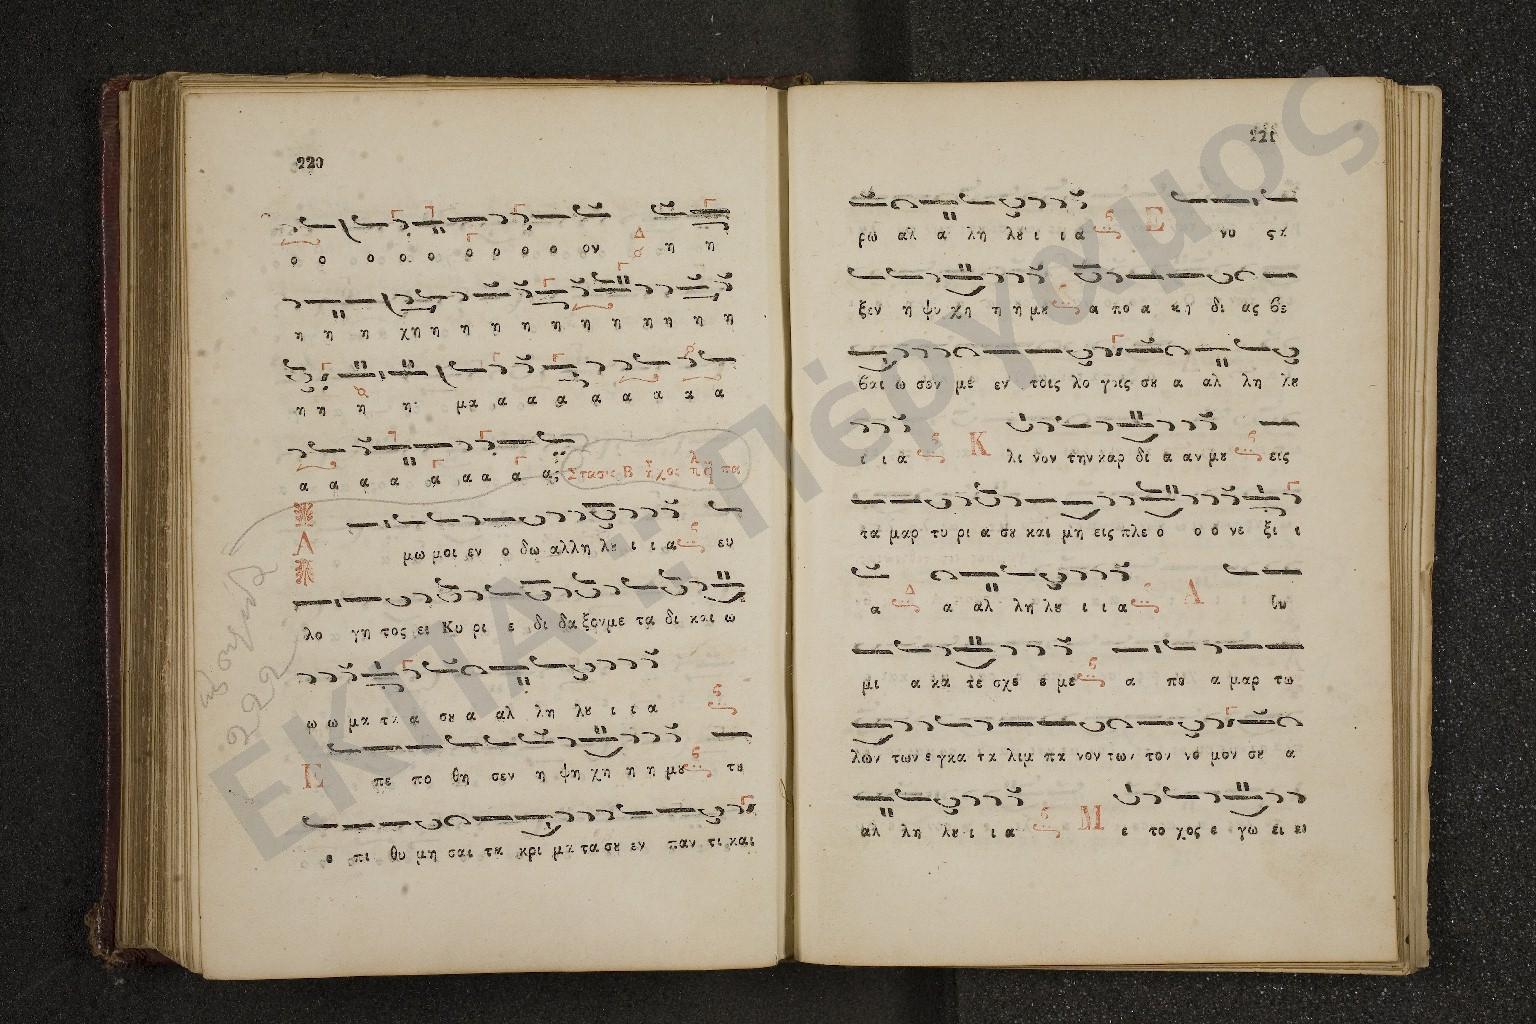 220
ο ο ο ο ο ο ο ο ο ον Δ η η
η η η χη η η η η η η η η η η η
η η η η μα α α α α α α α α
α α α α α α α α ας Στασις Β ἦχος πα
Α μω μοι εν ο δω αλλη λȣ ι ι α ευ
λο γη τος ει Κυ ρι ε δι δα ξον με τα δι και ω
ω ω μα τα α σȣ α αλ λη λȣ ι ι α
Ε πε πο θη σεν η ψη χη η η μȣ τȣ
ε πι θυ μη σαι τα κρι μα τα σȣ εν παν τι και
222
221
ρω αλ α λη λȣ ι ι α Ε νυ ςα
ξεν η ψυ χη η η μȣ α πο α κη δι ας βε
βαι ω σον με εν τοις λο γοις σȣ α αλ λη λȣ
ι ι α Κ λι νον την καρ δι α αν μȣ εις
τα μαρ τυ ρι α σȣ και μη εις πλε ο ο ο νε ξι ι
α Δ α αλ λη λȣ ι ι α Α θυ
μι α κα τε σχε ε με α πο α μαρ τω
λων των ε γκα τα λιμ πα νον των τον νο μον σȣ α
αλ λη λȣ ι ι α Μ ε το χος ε γω ει ει
ΕΚΠΑ :: Πέργαμος